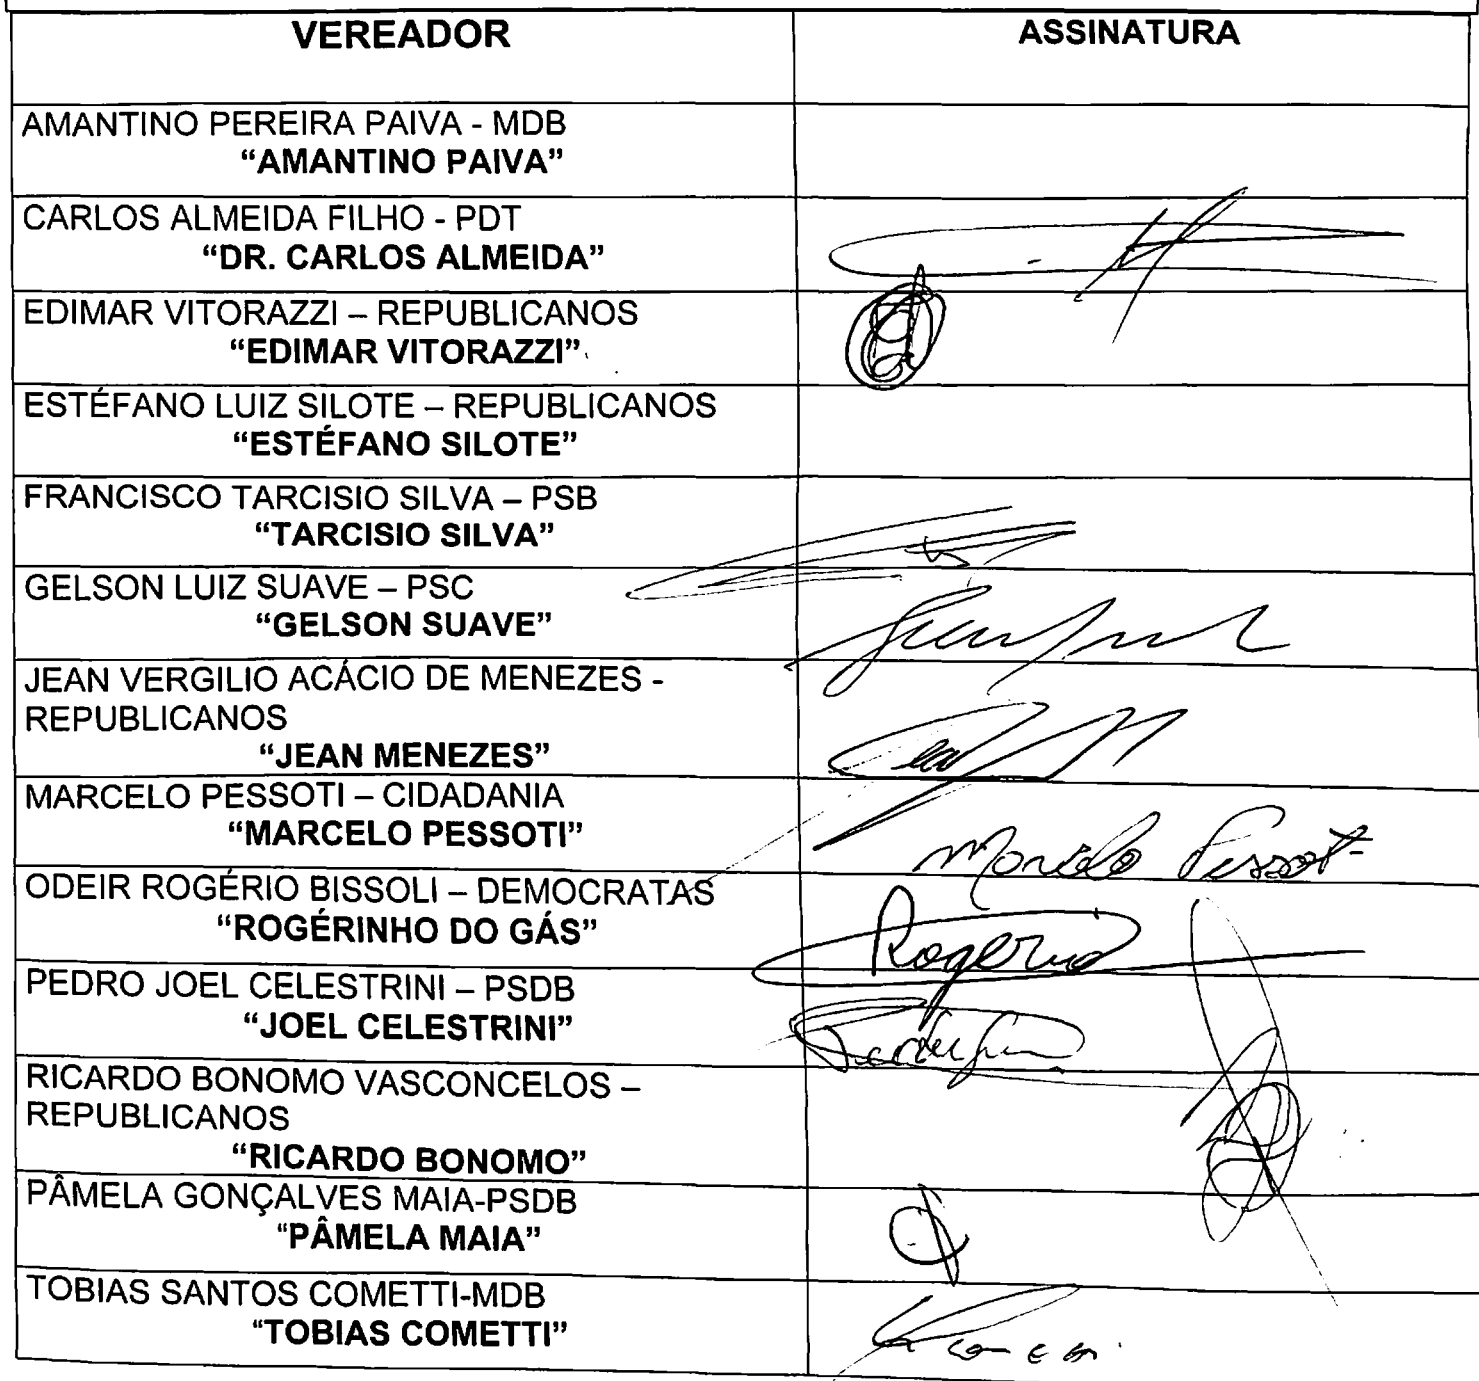 VEREADOR
ASSINATURA
AMANTINO PEREIRA PAIVA - MDB
“AMANTINO PAIVA”
CARLOS ALMEIDA FILHO - PDT
“DR. CARLOS ALMEIDA”
EDIMAR VITORAZZI – REPUBLICANOS
“EDIMAR VITORAZZI”
ESTÉFANO LUIZ SILOTE – REPUBLICANOS
“ESTÉFANO SILOTE”
FRANCISCO TARCISIO SILVA – PSB
“TARCISIO SILVA”
GELSON LUIZ SUAVE – PSC
“GELSON SUAVE”
JEAN VERGILIO ACÁCIO DE MENEZES -
REPUBLICANOS
“JEAN MENEZES”
MARCELO PESSOTI – CIDADANIA
“MARCELO PESSOTI”
Marcelo Pessoti
ODEIR ROGÉRIO BISSOLI – DEMOCRATAS
“ROGÉRINHO DO GÁS”
Rogerio
PEDRO JOEL CELESTRINI – PSDB
“JOEL CELESTRINI”
RICARDO BONOMO VASCONCELOS –
REPUBLICANOS
“RICARDO BONOMO”
PÂMELA GONÇALVES MAIA-PSDB
“PÂMELA MAIA”
TOBIAS SANTOS COMETTI-MDB
“TOBIAS COMETTI”